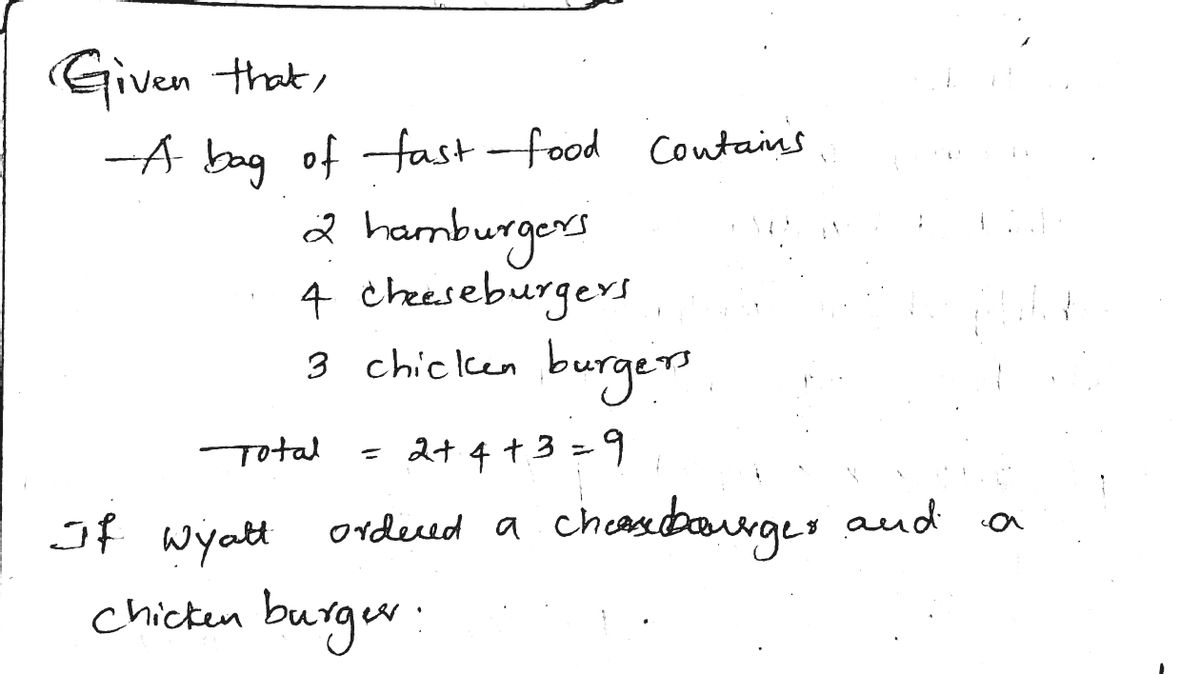 Given that,
A bag of fast-food contains
2 hamburgers
4 cheeseburgers
3 chicken burgers
Total = 2+4+3=9
If Wyatt ordered a cheeseburger and a
chicken burger.